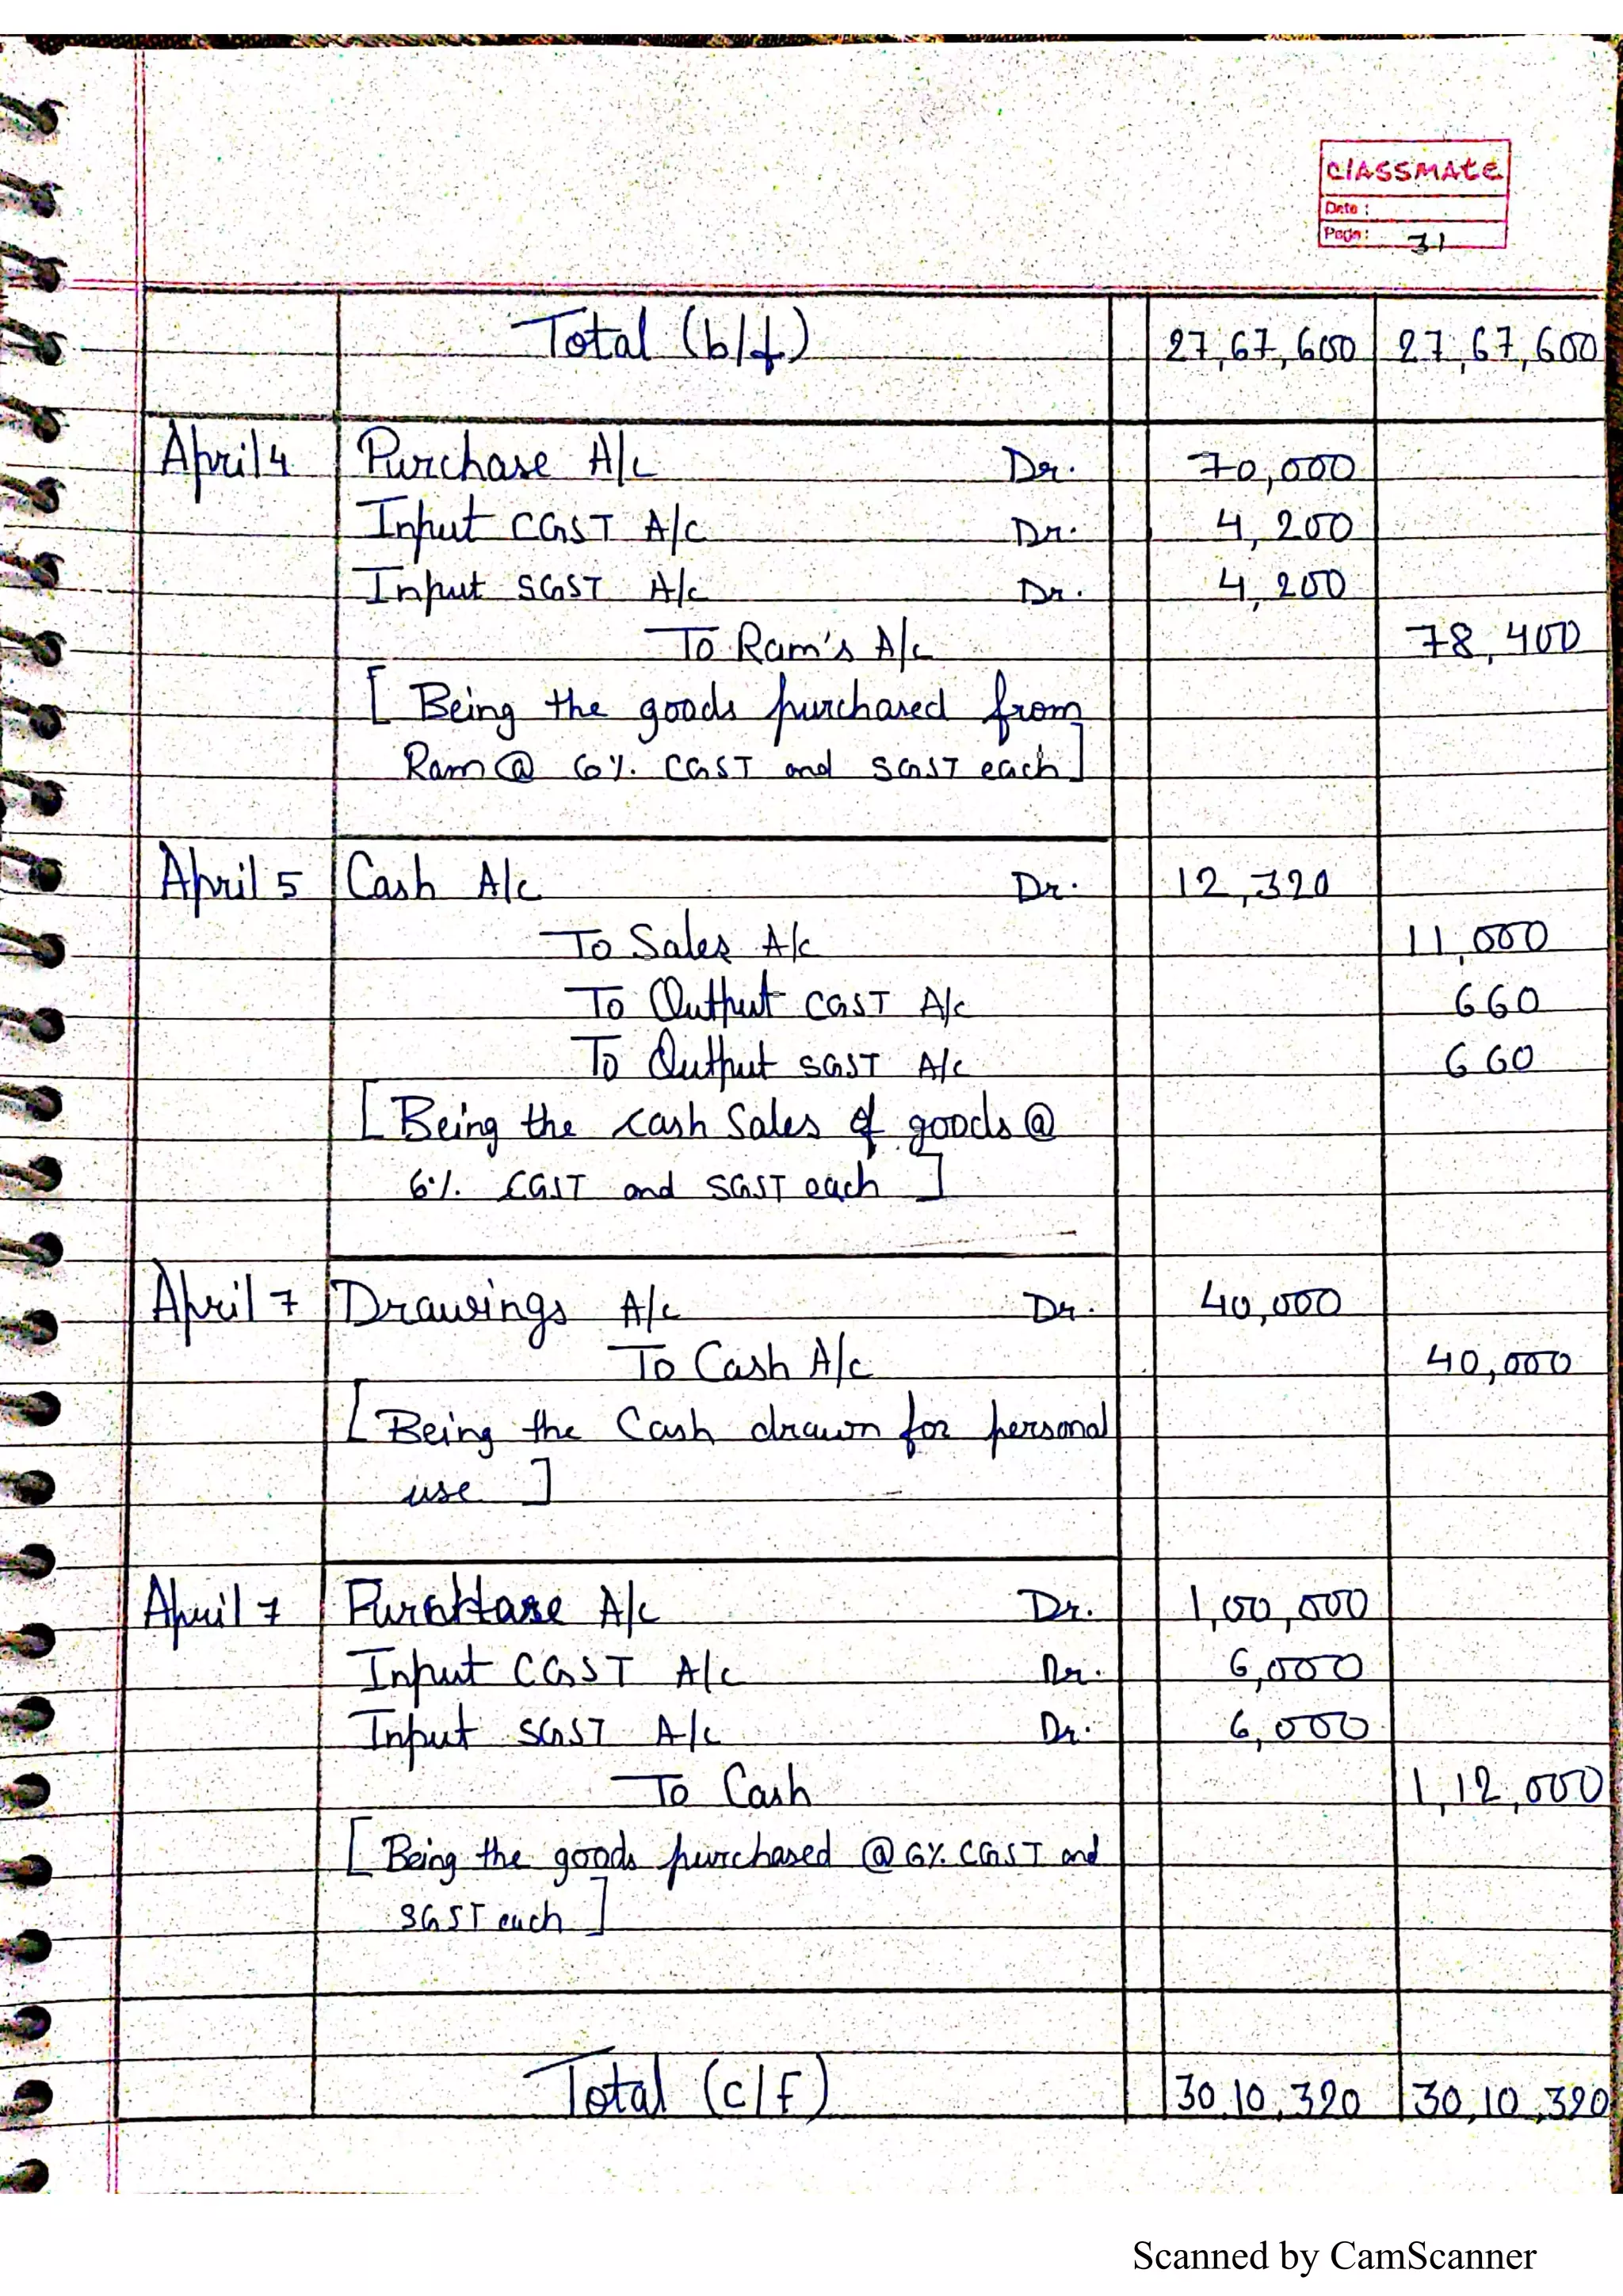 classmate
Date :
Page : 31
Total (b/f) 27,67,600 27,67,600
April 4 Purchase A/c Dr. 70,000
Input CGST A/c Dr. 4,200
Input SGST A/c Dr. 4,200
To Ram's A/c 78,400
[ Being the goods purchased from
Ram @ 6% CGST and SGST each ]
April 5 Cash A/c Dr. 12,320
To Sales A/c 11,000
To Output CGST A/c 660
To Output SGST A/c 660
[ Being the cash sales of goods @
6% CGST and SGST each ]
April 7 Drawings A/c Dr. 40,000
To Cash A/c 40,000
[ Being the Cash drawn for personal
use ]
April 7 Purchase A/c Dr. 1,00,000
Input CGST A/c Dr. 6,000
Input SGST A/c Dr. 6,000
To Cash 1,12,000
[ Being the goods purchased @ 6% CGST and
SGST each ]
Total (c/f) 30,10,320 30,10,320
Scanned by CamScanner